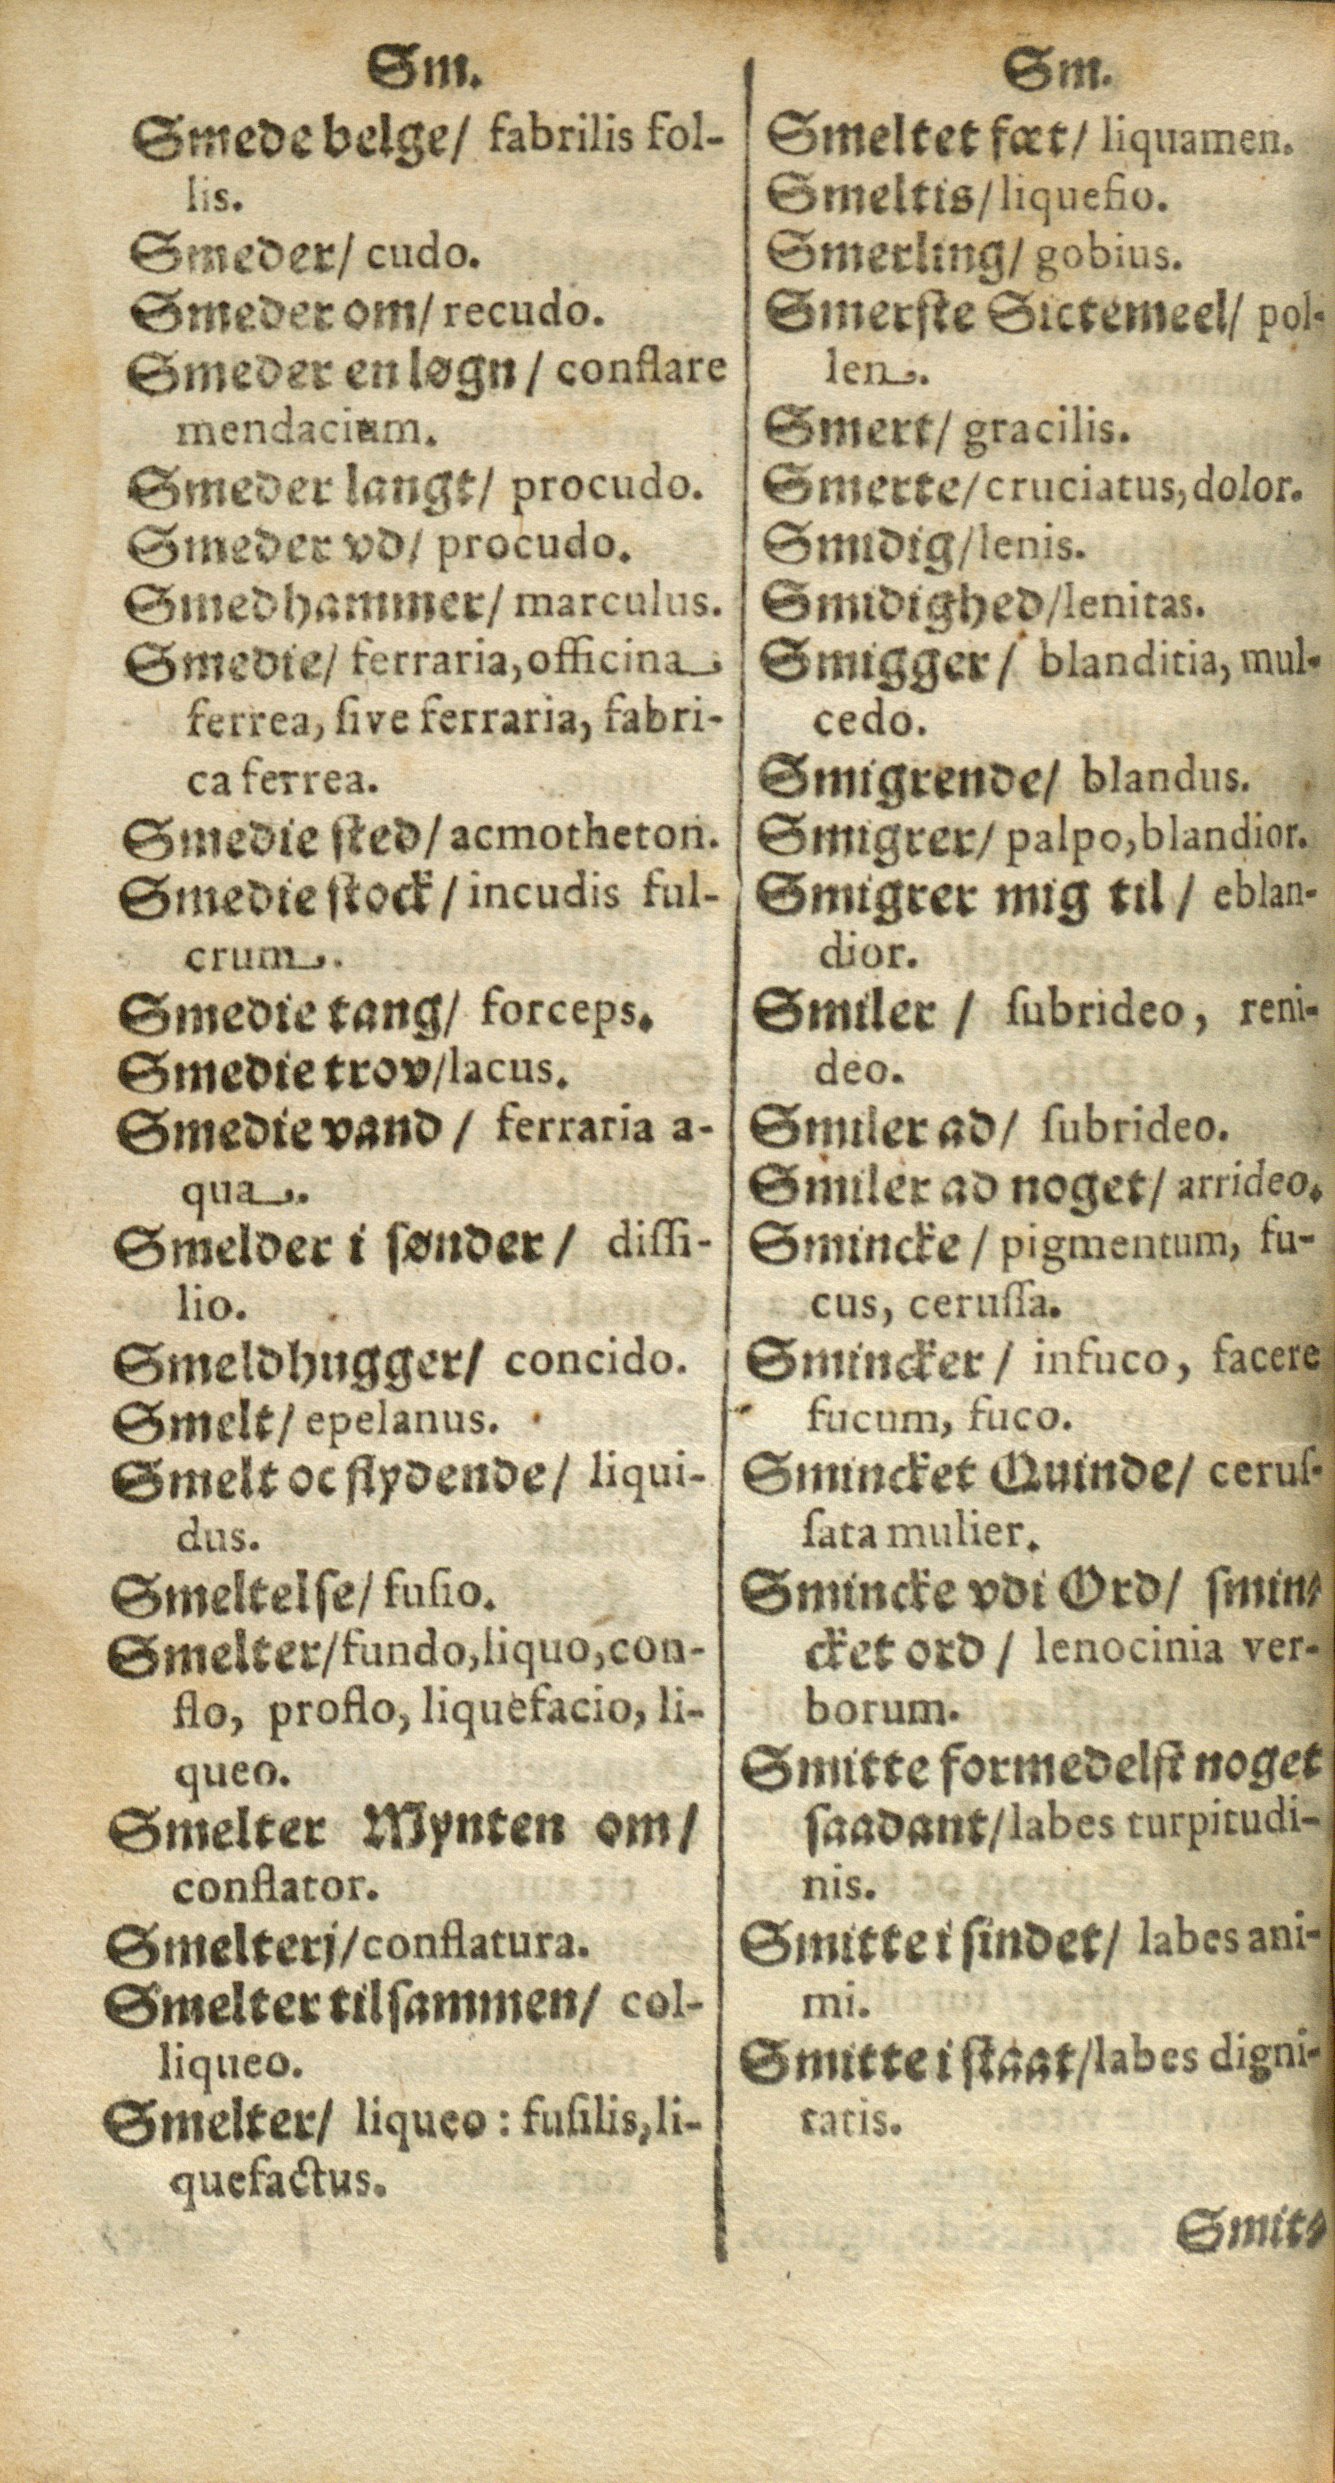 Sm.
Smede belge/ fabrilis fol-
lis.
Smeder/ cudo.
Smeder om/ recudo.
Smeder en løgn/ conflare
mendacium.
Smeder langt/ procudo.
Smeder vd/ procudo.
Smedhammer/ marculus.
Smedie/ ferraria, officina
ferrea, ſive ferraria, fabri-
ca ferrea.
Smedie ſted/ acmotheton.
Smedie ſtock/ incudis ful-
crum.
Smedie tang/ forceps.
Smedie trov/lacus.
Smedie vand/ ferraria a-
qua.
Smelder i ſønder/ diſſi-
lio.
Smeldhugger/ concido.
Smelt/ epelanus.
Smelt oc flydende/ liqui-
dus.
Smeltelſe/ fuſio.
Smelter/fundo, liquo, con-
flo, proflo, liquefacio, li-
queo.
Smelter Mynten om/
conflator.
Smelterj/conflatura.
Smelter tilſammen/ col-
liqueo.
Smelter/ liqueo: fuſilis, li-
quefactus.
Sm.
Smeltet fæt/ liquamen.
Smeltis/liquefio.
Smerling/ gobius.
Smerſte Sictemeel/ pol-
len.
Smert/ gracilis.
Smerte/cruciatus, dolor.
Smidig/lenis.
Smidighed/lenitas.
Smigger/ blanditia, mul-
cedo.
Smigrende/ blandus.
Smigrer/ palpo, blandior.
Smigrer mig til/ eblan-
dior.
Smiler/ ſubrideo, reni-
deo.
Smiler ad/ ſubrideo.
Smiler ad noget/ arrideo.
Smincke/ pigmentum, fu-
cus, ceruſſa.
Smincker/ infuco, facere
fucum, fuco.
Smincket Quinde/ ceruſ-
ſata mulier.
Smincke vdi Ord/ ſmin-
cket ord/ lenocinia ver-
borum.
Smitte formedelſt noget
ſaadant/labes turpitudi-
nis.
Smitte i ſindet/ labes ani-
mi.
Smitte i ſtaat/labes digni-
tatis.
Smit-